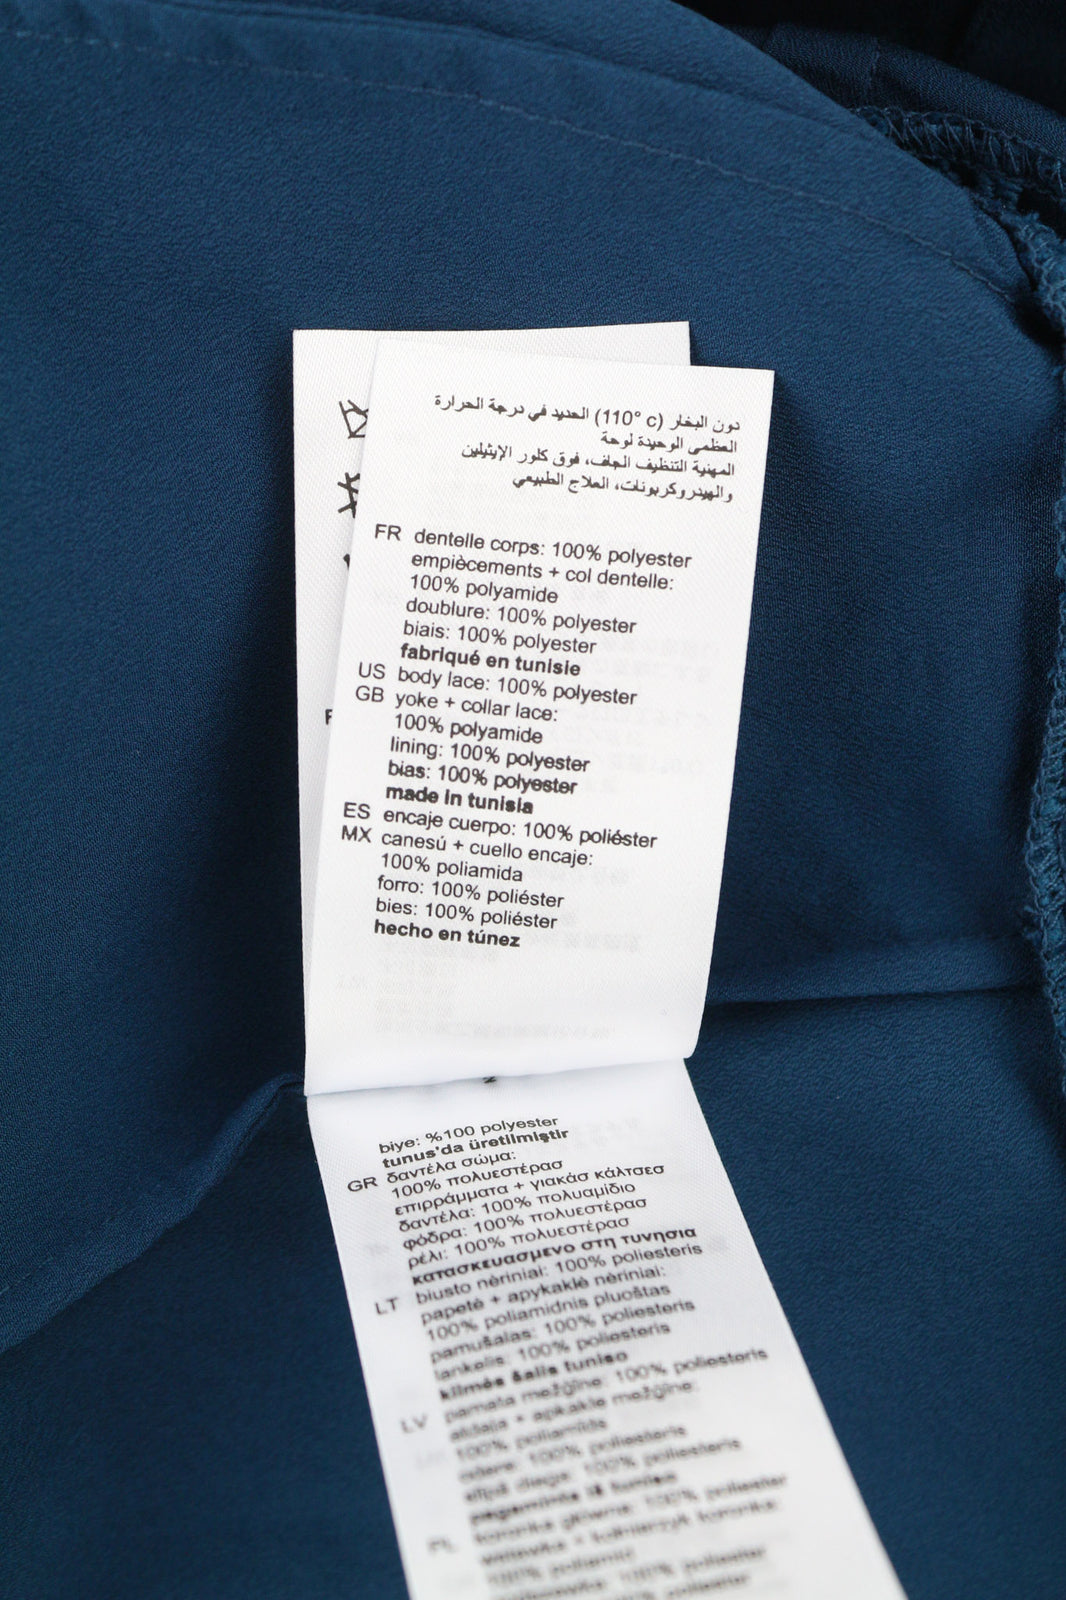 دون البخار (110° c) الحديد في درجة الحرارة
العظمى الوحيدة لوحة
المهنية التنظيف الجاف، فوق كلور الإيثيلين
والهيدروكربونات، العلاج الطبيعي
FR dentelle corps: 100% polyester
empiècements + col dentelle:
100% polyamide
doublure: 100% polyester
biais: 100% polyester
fabriqué en tunisie
US body lace: 100% polyester
GB yoke + collar lace:
100% polyamide
lining: 100% polyester
bias: 100% polyester
made in tunisia
ES encaje cuerpo: 100% poliéster
MX canesú + cuello encaje:
100% poliamida
forro: 100% poliéster
bies: 100% poliéster
hecho en túnez
biye: %100 polyester
tunus'da üretilmiştir
GR δαντέλα σώμα:
100% πολυεστέρασ
επιρράμματα + γιακάσ κάλτσεσ
δαντέλα: 100% πολυαμίδιο
φόδρα: 100% πολυεστέρασ
ρέλι: 100% πολυεστέρασ
κατασκευασμενο στη τυνησια
LT biusto nėriniai: 100% poliesteris
papetė + apykaklė nėriniai:
100% poliamidnis pluoštas
pamušalas: 100% poliesteris
lankelis: 100% poliesteris
kilmės šalis tuniso
LV pamata mežģīne: 100% poliesteris
apkakle mežģīne:
100% poliamīds
odere: 100% poliesteris
100% poliesteris
PL koronka główna: 100% poliester
kołnierzyk koronka:
100% poliamid
100% poliester